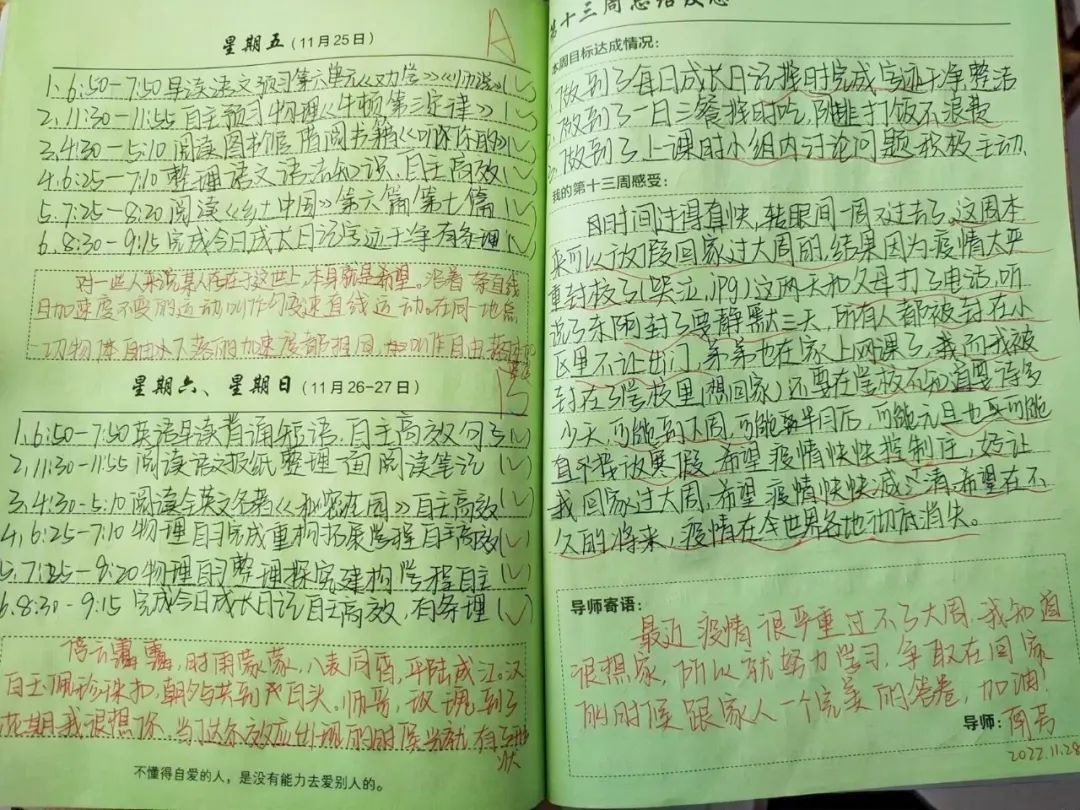 星期五（11月25日）
A
1、6:50-7:50早读语文预习第六单元《劝学》《师说》(√)
2、11:30-11:55 自主预习物理《牛顿第三定律》(√)
3、4:30-5:10 阅读图书馆借阅书籍《听你的》(√)
4、6:25-7:10 整理语文语法知识、自主高效(√)
5、7:25-8:20 阅读《乡土中国》第六篇第七篇(√)
6、8:30-9:15完成今日成长日记字迹干净有条理(√)
对一些人来说某人存在于这世上,本身就是希望。沿着一条直线
且加速度不变的运动叫作匀变速直线运动。在同一地点
一切物体自由下落的加速度都相同,叫作自由落体
星期六、星期日（11月26-27日）
B
1、6:50-7:50英语早读背诵短语、自主高效(√)
2、11:30-11:55 阅读语文报纸整理一面阅读笔记(√)
3、4:30-5:10阅读全英文名著《秘密花园》自主高效(√)
4、6:25-7:10 物理自习完成重构拓展学程自主高效(√)
5、7:25-8:20物理自习整理探究建构学程自主(√)
6、8:30-9:15 完成今日成长日记自主高效,有条理(√)
停云霭霭,时雨蒙蒙,八表同昏,平陆成江。汉
白玉佩珍珠扣,朝夕与共到白头。
花期我很想你、当多普勒效应出现的时候
不懂得自爱的人，是没有能力去爱别人的。
第十三周总结反思
本周目标达成情况：
做到了每日成长日记按时完成字迹干净整洁
做到了一日三餐按时吃,排队打饭不浪费
做到了上课时小组内讨论问题积极主动
我的第十三周感受：
时间过得真快,转眼间一周又过去了,这周本
来可以放假回家过大周的,结果因为疫情太严
重封校了(哭泣.jpg)这两天和父母打了电话,听
说了东阿封了要静默三天,所有人都被封在小
区里不让出门,弟弟也在家上网课了,我而我被
封在了学校里(想回家)还要在学校不知道要待多
少天,可能到下周,可能到半月后,可能元旦也可能
直接放寒假.希望疫情快快控制住,好让
我回家过大周、希望疫情快快减少清,希望在不
久的将来,疫情在全世界各地彻底消失。
导师寄语：
最近疫情很严重过不了大周,我知道
很想家,所以就努力学习,争取在回家
的时候跟家人一个完美的答卷,加油!
导师：
2022.11.28